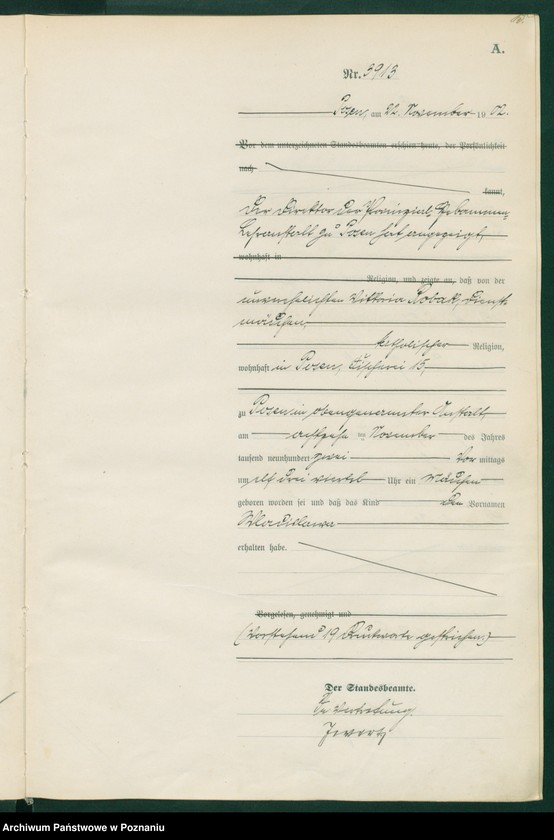 A.
Nr. 3913
Posen, am 22. November 1902.
Vor dem unterzeichneten Standesbeamten erschien heute, der Persönlichkeit
nach
kannt,
Der Direktor der Provinzial-Hebammen
Lehranstalt zu Posen hat angezeigt,
wohnhaft in
Religion, und zeigte an, daß von der
unverehelichten Viktoria Robak, Dienst
mädchen,
katholischer Religion,
wohnhaft in Posen, Fischerei 15,
zu Posen in obengenannter Anstalt,
am achtzehn ten November des Jahres
tausend neunhundert zwei Vor mittags
um elf drei viertel Uhr ein Mädchen
geboren worden sei und daß das Kind den Vornamen
Wladislawa
erhalten habe.
Vorgelesen, genehmigt und
(Vorstehend 19 Druckworte gestrichen)
Der Standesbeamte.
In Vertretung
Archiwum Państwowe w Poznaniu